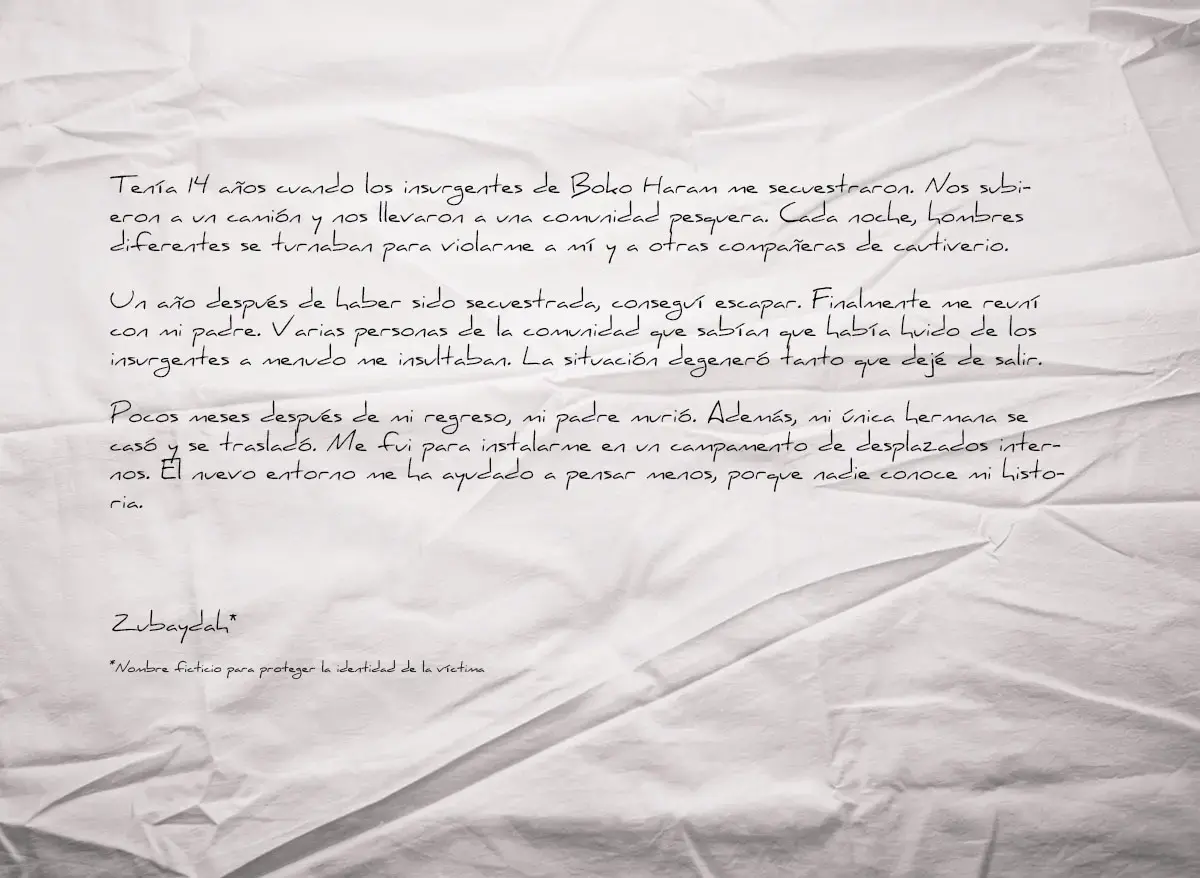 Tenía 14 años cuando los insurgentes de Boko Haram me secuestraron. Nos subi-
eron a un camión y nos llevaron a una comunidad pesquera. Cada noche, hombres
diferentes se turnaban para violarme a mí y a otras compañeras de cautiverio.
Un año después de haber sido secuestrada, conseguí escapar. Finalmente me reuní
con mi padre. Varias personas de la comunidad que sabían que había huido de los
insurgentes a menudo me insultaban. La situación degeneró tanto que dejé de salir.
Pocos meses después de mi regreso, mi padre murió. Además, mi única hermana se
casó y se trasladó. Me fui para instalarme en un campamento de desplazados inter-
nos. El nuevo entorno me ha ayudado a pensar menos, porque nadie conoce mi histo-
ria.
Zubaydah*
*Nombre ficticio para proteger la identidad de la víctima